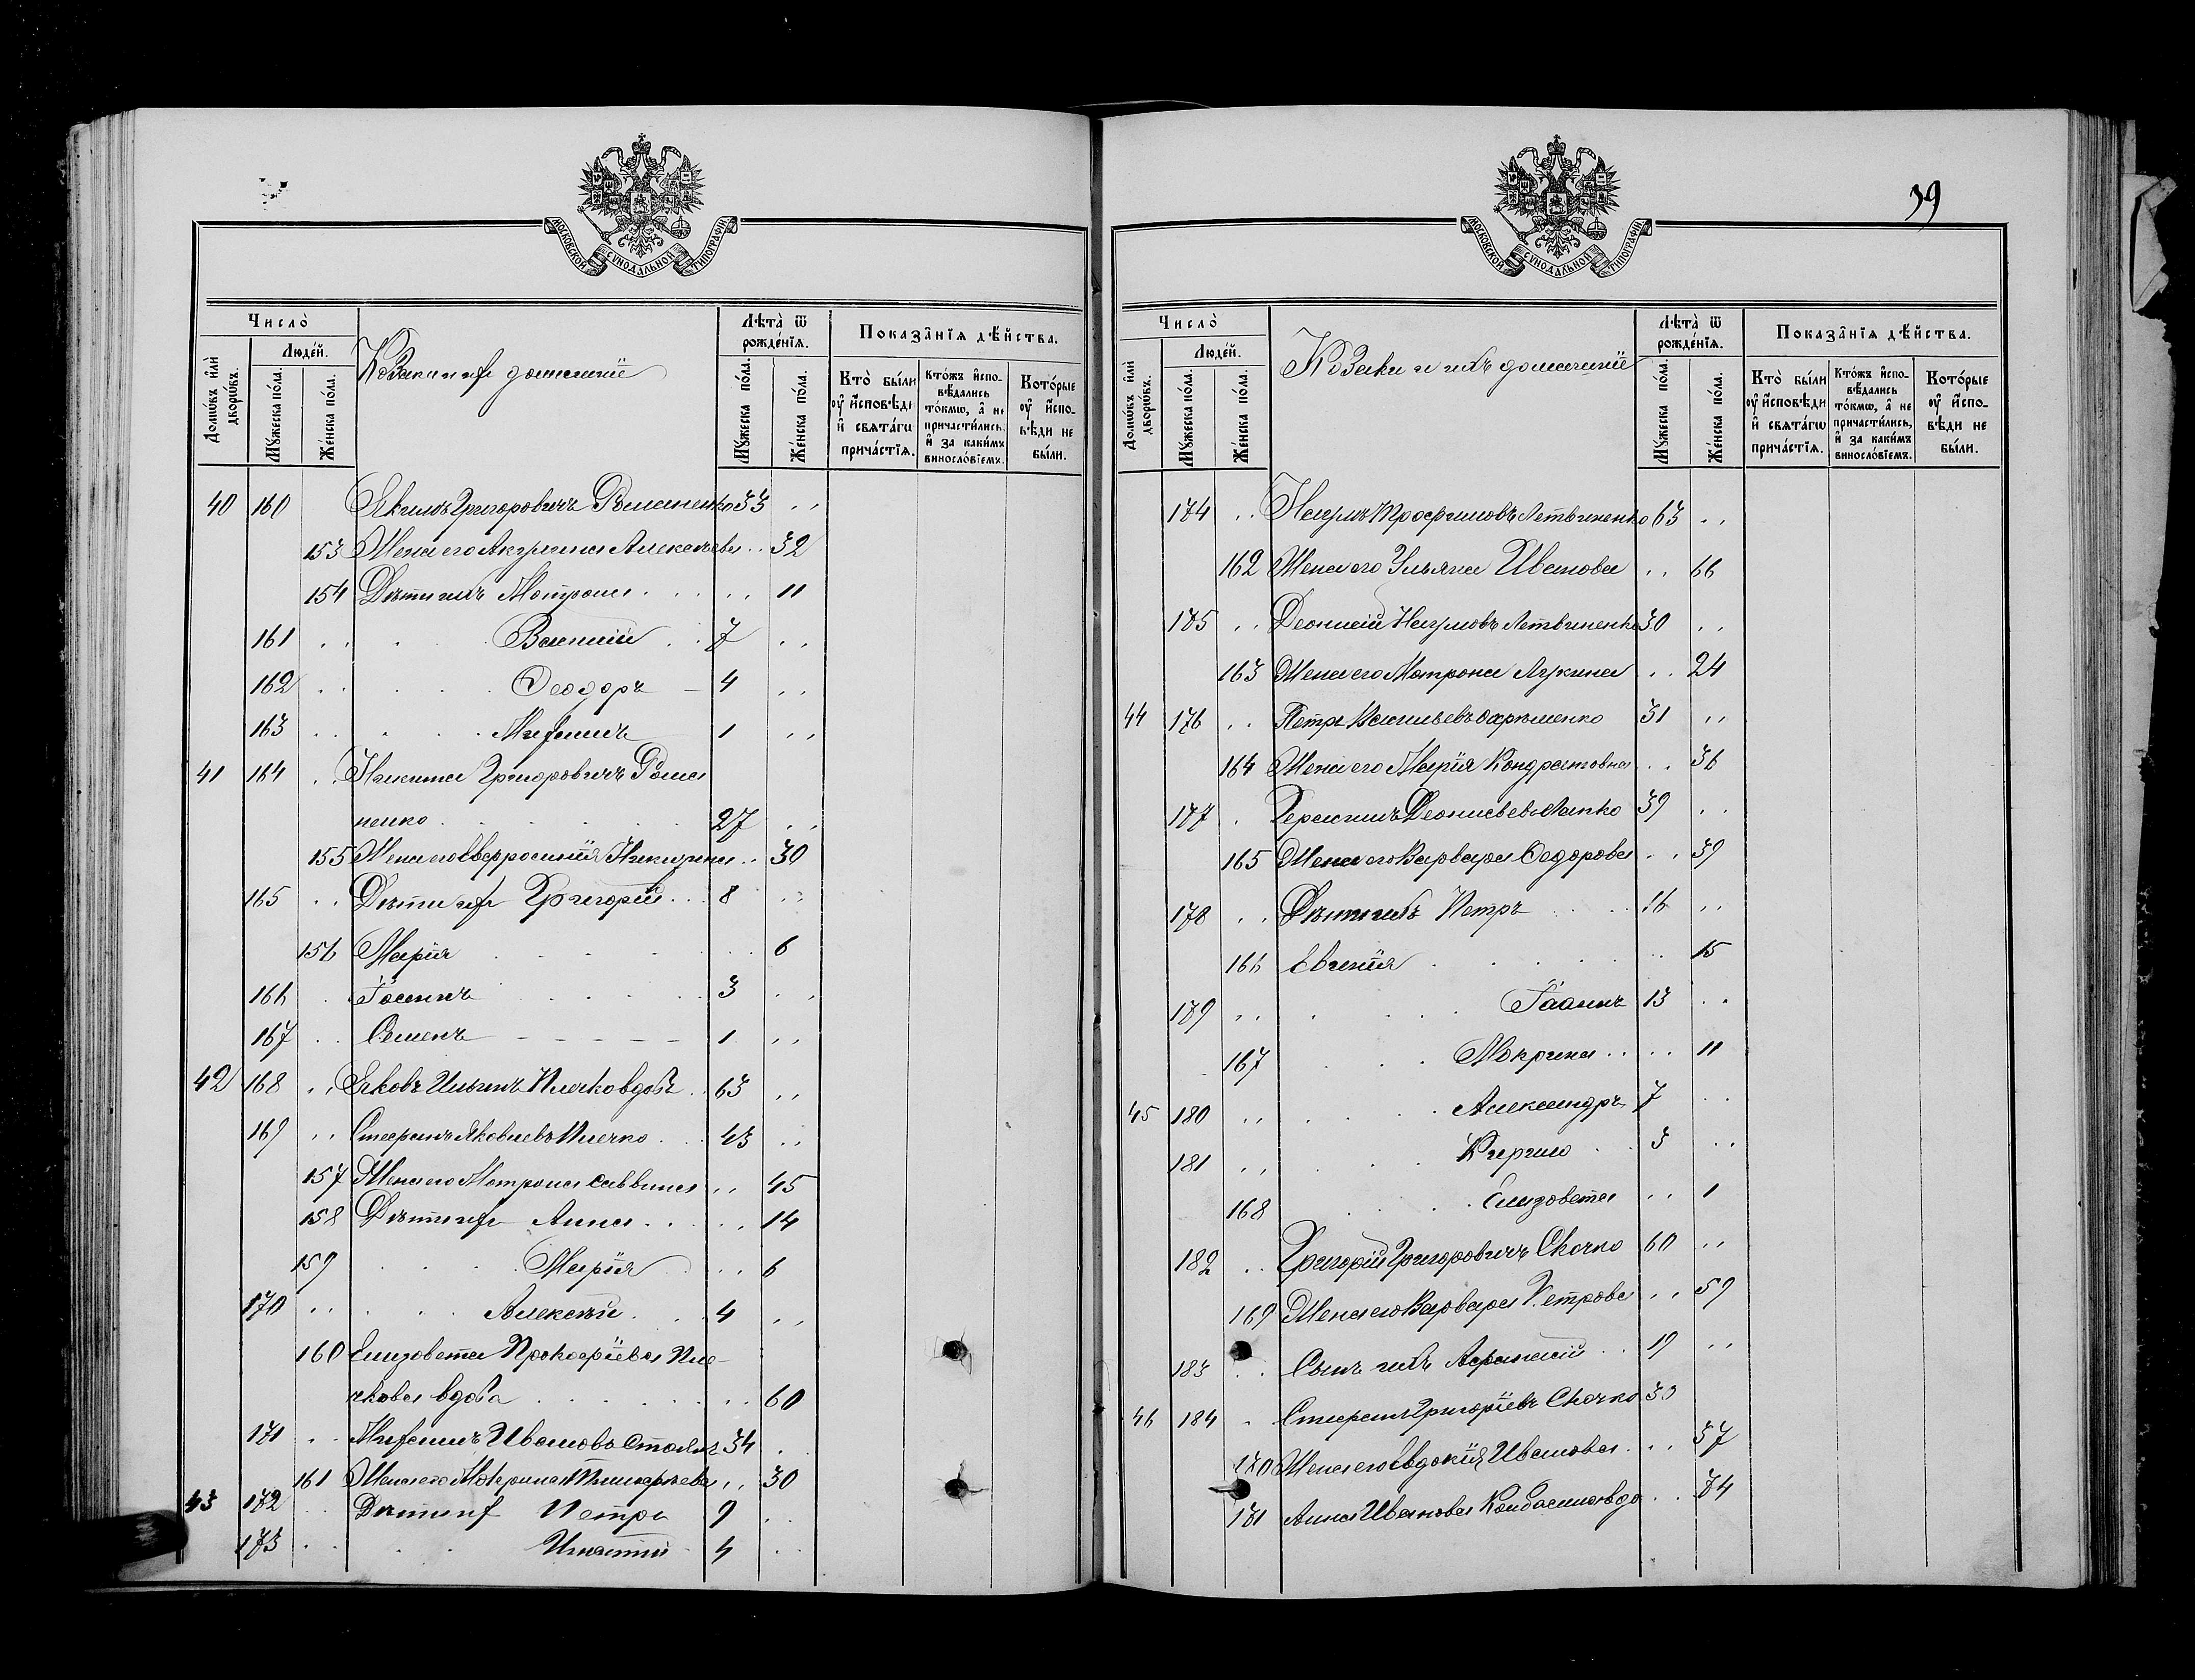 МОСКОВСКОЙ СѴНОДАЛЬНОЙ ТИПОГРАФІИ
Число̀
Домѡ́въ и҆лѝ дворѡ́въ.
Люде́й.
Мꙋ́жеска по́ла.
Же́нска по́ла.
Козаки и ихъ домашніе
Лѣта̀ ѿ рожде́нїѧ.
Мꙋ́жеска по́ла.
Же́нска по́ла.
Показа̑нїѧ дѣ́йства.
Кто̀ бы́ли оу҆ и҆сповѣди и҆ свѧта́гѡ прича́стїѧ.
Кто́жъ и҆спо-вѣ́дались то́кмѡ, а҆ не причасти́лись, и҆ за каки́мъ винословїемъ.
Кото́рые оу҆ и҆спо-вѣди не бы́ли.
40 160 Якимъ Григоровичъ Романенко 33 ..
153 Жена его Акулина Алексѣева .. 32
154 Дѣти ихъ Матрона .. 11
161 .. Василій 7 ..
162 .. Ѳеодоръ 4 ..
163 .. Михаилъ 1 ..
41 164 .. Никита Григоровичъ Рома
ненко 27 ..
155 Жена его Евфросинія .. 30
165 .. Дѣти ихъ Григорій 8 ..
156 Марія .. 6
166 . Іоаннъ 3 ..
167 .. Семенъ 1 ..
42 168 .. Яковъ Ильинъ Плечко вдовъ 63 ..
169 .. Стефанъ Яковлевъ Плечко 43 ..
157 Жена его Матрона Саввина .. 45
158 Дѣти ихъ Анна .. 14
159 Марія .. 6
170 .. Алексѣй 4 ..
160 Елизовета Прокофіева Пле-
чкова вдова .. 60
171 .. Михаилъ Ивановъ 34 .
161 Жена его .. 30
43 172 .. Дѣти ихъ Петръ 9 ..
173 .. Игнатій 4 ..
39
МОСКОВСКОЙ СѴНОДАЛЬНОЙ ТИПОГРАФІИ
Число̀
Домѡ́въ и҆лѝ дворѡ́въ.
Люде́й.
Мꙋ́жеска по́ла.
Же́нска по́ла.
Козаки и ихъ домашніе
Лѣта̀ ѿ рожде́нїѧ.
Мꙋ́жеска по́ла.
Же́нска по́ла.
Показа̑нїѧ дѣ́йства.
Кто̀ бы́ли оу҆ и҆сповѣди и҆ свѧта́гѡ прича́стїѧ.
Кто́жъ и҆спо-вѣ́дались то́кмѡ, а҆ не причасти́лись, и҆ за каки́мъ винословїемъ.
Кото́рые оу҆ и҆спо-вѣди не бы́ли.
174 .. Наумъ Трофимовъ Летвиненко 63 ..
162 Жена его Ульяна Иванова .. 66
175 .. Деонисій Наумовъ Летвиненко 30 ..
163 Жена его Матрона Лукина .. 24
44 176 .. Петръ Васильевъ 31 ..
164 Жена его Марія Кондратовна .. 36
177 . Герасимъ Деонисьевъ Лапко 39 ..
165 Жена его Варвара Ѳедорова .. 39
178 .. Дѣти ихъ Петръ 16 ..
166 Евгенія .. 15
179 .. Іоаннъ 13 ..
167 Мокрина .. 11
45 180 .. Александръ 7 ..
181 .. Кирило 3 ..
168 Елизовета .. 1
182 .. Григорій Григоровичъ Скочко 60 ..
169 Жена его Варвара Петрова .. 59
183 .. Сынъ ихъ Афанасій 19 ..
46 184 . Стефанъ Григоріевъ Скочко
170 Жена его Евдокія Иванова .. 37
171 Анна Иванова вдо .. 74